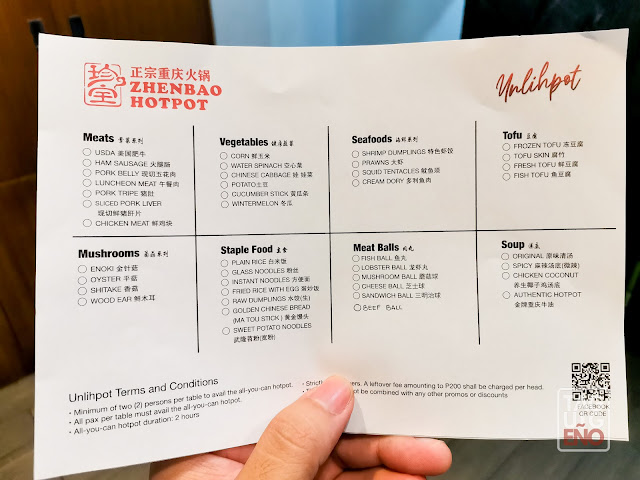 珍宝
正宗重庆火锅
ZHENBAO
HOTPOT
Unlihpot
Meats 荤菜系列
USDA 美国肥牛
HAM SAUSAGE 火腿肠
PORK BELLY 现切五花肉
LUNCHEON MEAT 午餐肉
PORK TRIPE 猪肚
SLICED PORK LIVER
现切鲜猪肝片
CHICKEN MEAT 鲜鸡块
Vegetables 健康蔬菜
CORN 鲜玉米
WATER SPINACH 空心菜
CHINESE CABBAGE 娃娃菜
POTATO 土豆
CUCUMBER STICK 黄瓜条
WINTERMELON 冬瓜
Seafoods 海鲜系列
SHRIMP DUMPLINGS 特色虾饺
PRAWNS 大虾
SQUID TENTACLES 鱿鱼须
CREAM DORY 多利鱼肉
Tofu 豆腐
FROZEN TOFU 冻豆腐
TOFU SKIN 腐竹
FRESH TOFU 鲜豆腐
FISH TOFU 鱼豆腐
Mushrooms 菌菇系列
ENOKI 金针菇
OYSTER 平菇
SHITAKE 香菇
WOOD EAR 鲜木耳
Staple Food 主食
PLAIN RICE 白米饭
GLASS NOODLES 粉丝
INSTANT NOODLES 方便面
FRIED RICE WITH EGG 蛋炒饭
RAW DUMPLINGS 水饺(生)
GOLDEN CHINESE BREAD
(MA TOU STICK) 黄金馒头
SWEET POTATO NOODLES
武隆苕粉(宽粉)
Meat Balls 肉丸
FISH BALL 鱼丸
LOBSTER BALL 龙虾丸
MUSHROOM BALL 蘑菇球
CHEESE BALL 芝士球
SANDWICH BALL 三明治球
BEEF BALL
Soup 汤底
ORIGINAL 原味清汤
SPICY 麻辣汤底(微辣)
CHICKEN COCONUT
养生椰子鸡汤底
AUTHENTIC HOTPOT
金牌重庆牛油
Unlihpot Terms and Conditions
• Minimum of two (2) persons per table to avail the all-you-can hotpot.
• All pax per table must avail the all-you-can hotpot.
• All-you-can hotpot duration: 2 hours
• Strictly A leftover fee amounting to P200 shall be charged per head.
not be combined with any other promos or discounts
FACEBOOK
QR CODE
EÑO